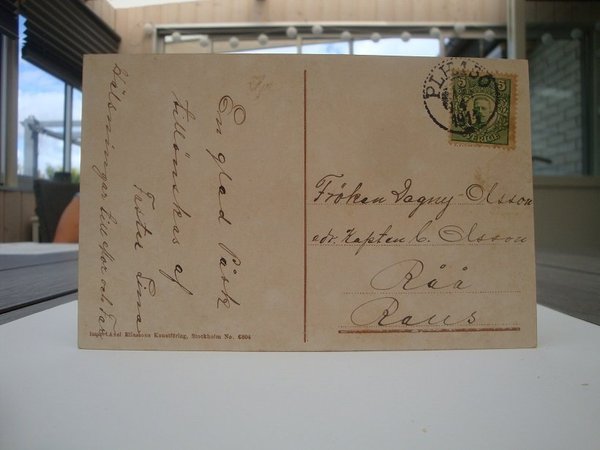 En glad påsk
tillönskas af
Faster Emma
Hälsningar till Mor och Far
Fröken Dagny Olsson
adr. Kapten C. Olsson
Råå
Raus
Import. Axel Eliassons Konstförlag, Stockholm No. 6804
5
5